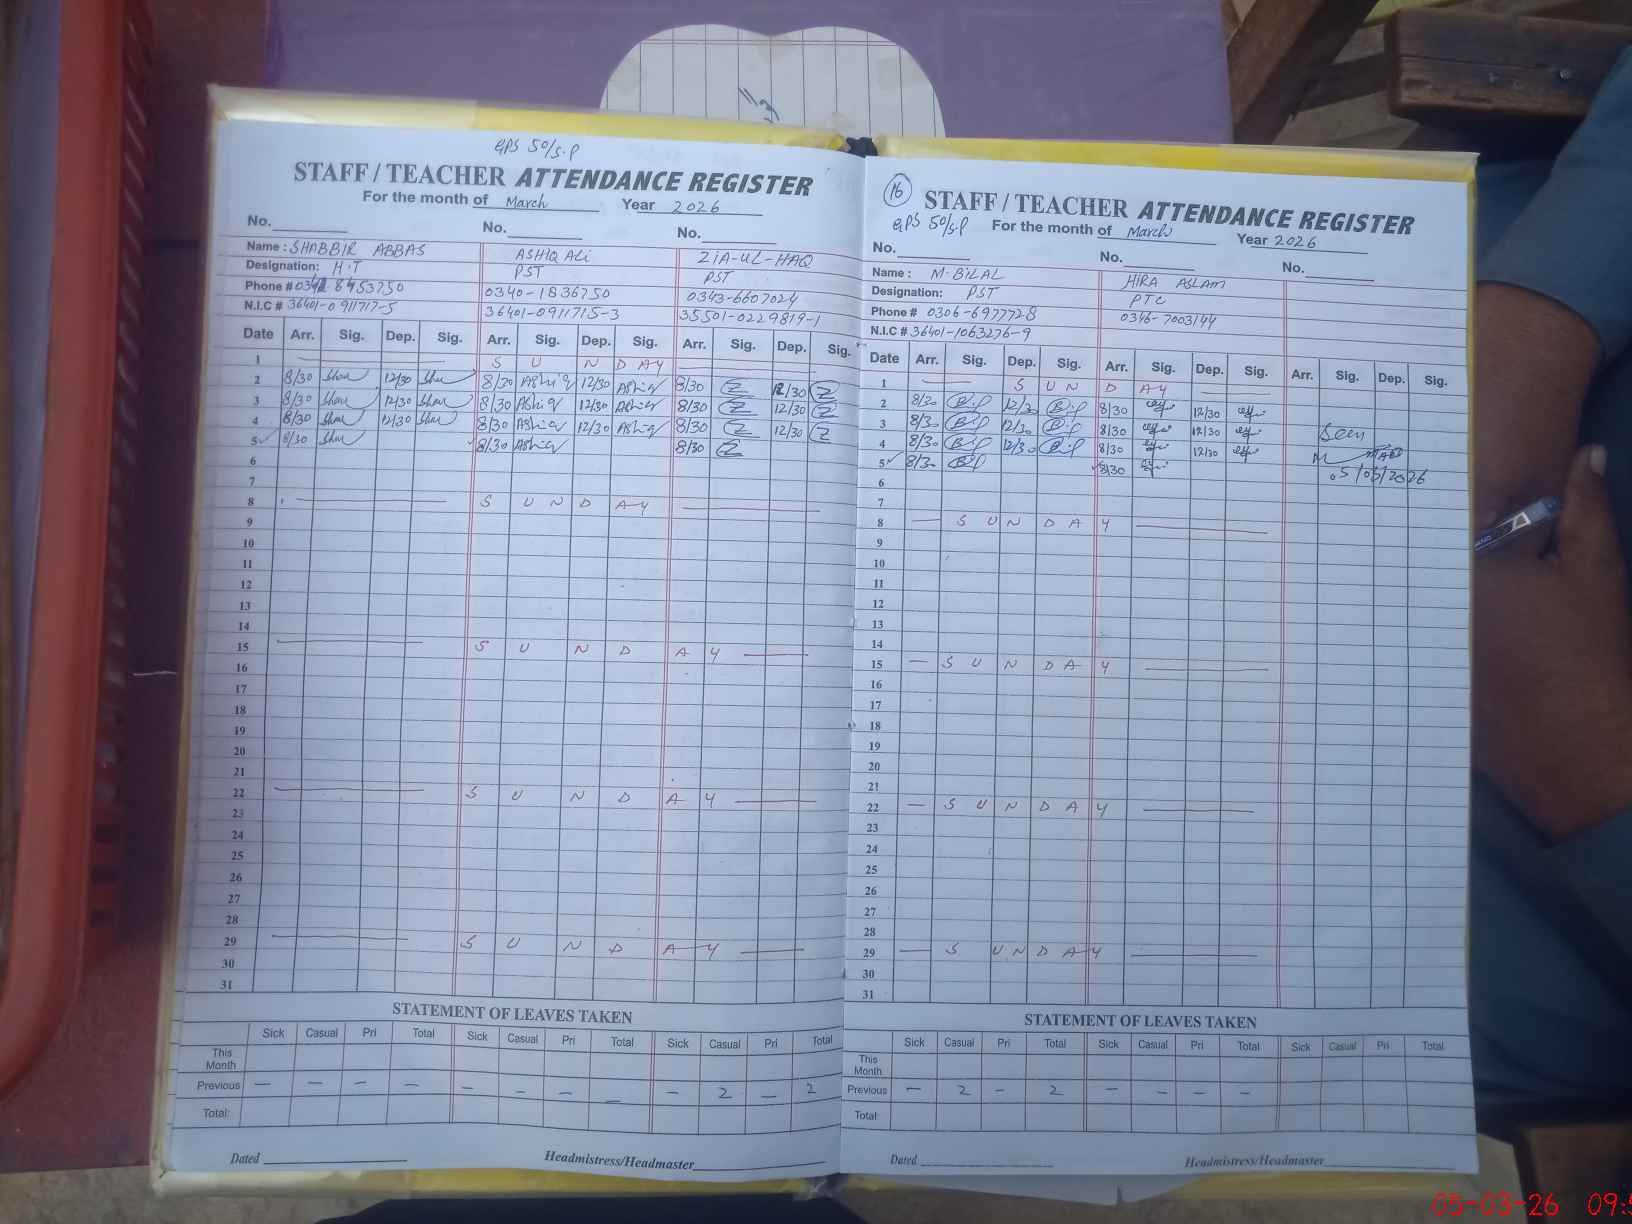 GPS 50/S.P
STAFF / TEACHER ATTENDANCE REGISTER
For the month of March Year 2026
No. No. No.
Name : SHABBIR ABBAS ASHIQ ALi ZIA-UL-HAQ
Designation: H.T PST PST
Phone # 8953750 0340-1836750 0343-6607024
N.I.C # 36401-0911717-5 36401-0911715-3 35501-0229819-1
Date Arr. Sig. Dep. Sig. Arr. Sig. Dep. Sig. Arr. Sig. Dep. Sig.
1 S U N D A Y
2 8/30 Sha 12/30 Sha 8/30 Ashiq 12/30 Ashiq 8/30 Z 12/30 Z
3 8/30 Sha 12/30 Sha 8/30 Ashiq 12/30 Ashiq 8/30 Z 12/30 Z
4 8/30 Sha 12/30 Sha 8/30 Ashiq 12/30 Ashiq 8/30 Z 12/30 Z
5 8/30 Sha 8/30 Ashiq 8/30 Z
6
7
8 S U N D A Y
9
10
11
12
13
14
15 S U N D A Y
16
17
18
19
20
21
22 S U N D A Y
23
24
25
26
27
28
29 S U N D A Y
30
31
STATEMENT OF LEAVES TAKEN
Sick Casual Pri Total Sick Casual Pri Total Sick Casual Pri Total
This Month
Previous — — — — — — — — — 2 — 2
Total:
Dated Headmistress/Headmaster
16
STAFF / TEACHER ATTENDANCE REGISTER
GPS 50/S.P For the month of March Year 2026
No. No. No.
Name : M. BILAL HIRA ASLAM
Designation: PST PTC
Phone # 0306-6977728 0346-7003144
N.I.C # 36401-1063276-9
Date Arr. Sig. Dep. Sig. Arr. Sig. Dep. Sig. Arr. Sig. Dep. Sig.
1 S U N D A Y
2 8/30 Bil 12/30 Bil 8/30 12/30
3 8/30 Bil 12/30 Bil 8/30 12/30 Seen
4 8/30 Bil 12/30 Bil 8/30 12/30
5 8/30 Bil 8/30 05/03/2026
6
7
8 S U N D A Y
9
10
11
12
13
14
15 S U N D A Y
16
17
18
19
20
21
22 S U N D A Y
23
24
25
26
27
28
29 S U N D A Y
30
31
STATEMENT OF LEAVES TAKEN
Sick Casual Pri Total Sick Casual Pri Total Sick Casual Pri Total
This Month
Previous — 2 — 2 — — — —
Total:
Dated Headmistress/Headmaster
05-03-26 09:5